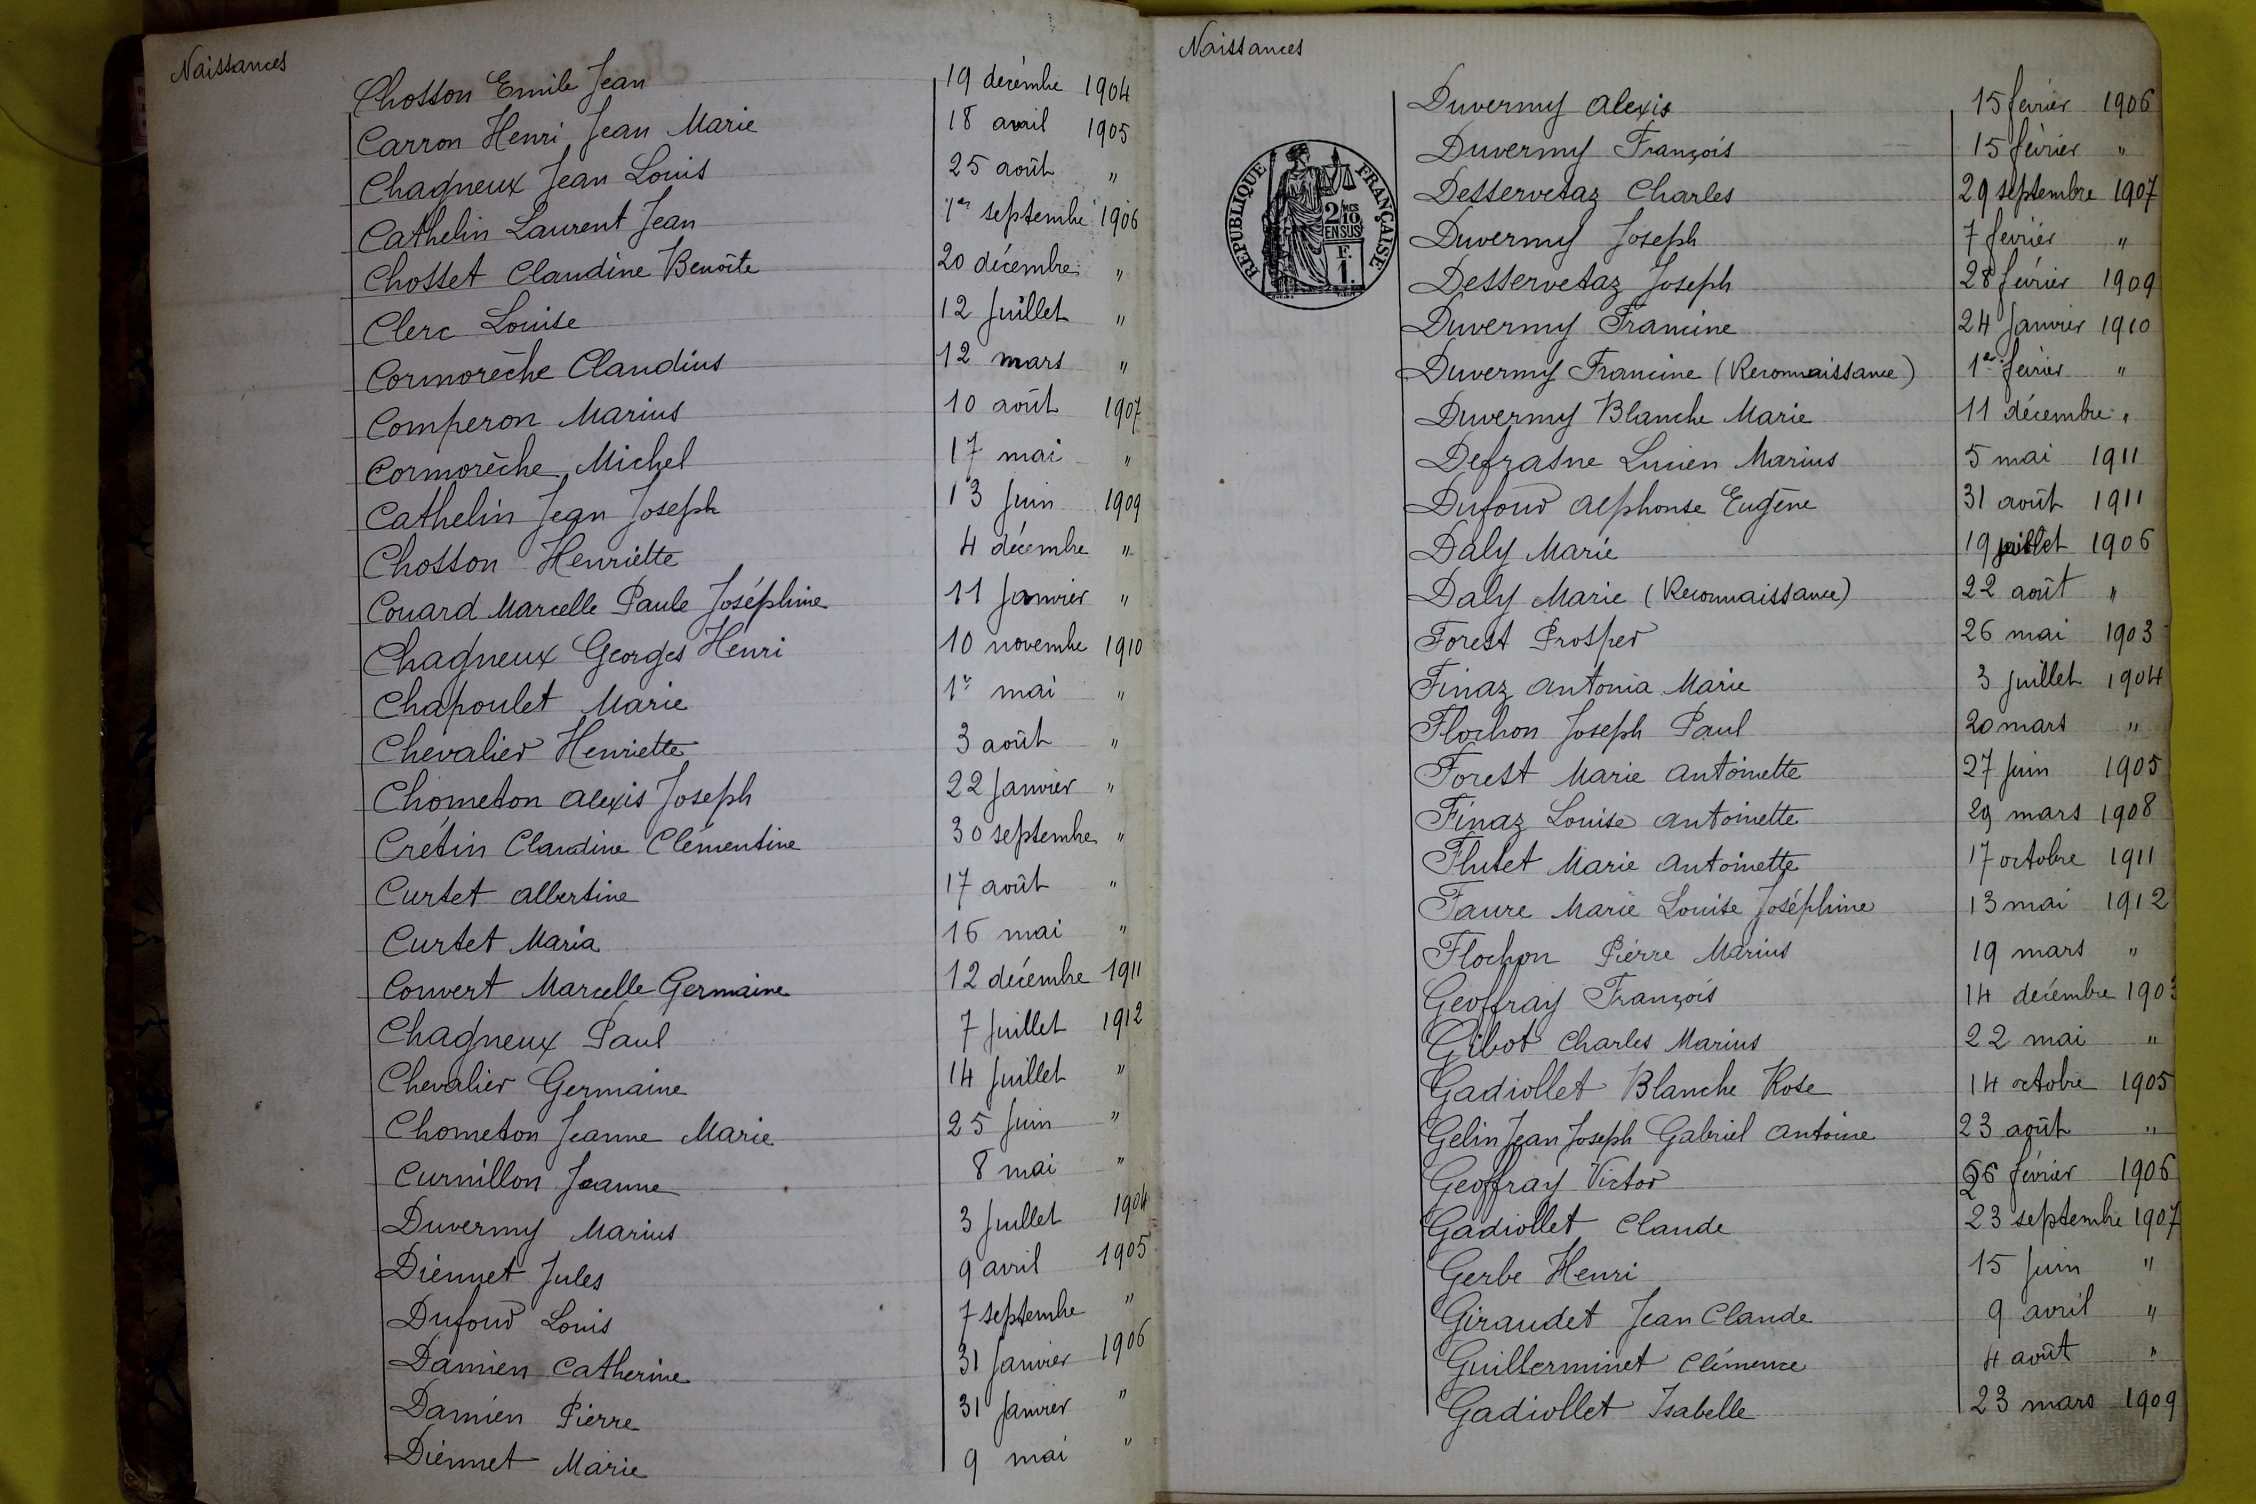 Naissances
Chosson Emile Jean 19 decémbre 1904
Carron Henri Jean Marie 18 avril 1905
Chagneux Jean Louis 25 août "
Cathelin Laurent Jean 1er septembre 1906
Chosset Claudine Benoîte 20 décembre "
Clerc Louise 12 Juillet "
Cormorèche Claudius 12 mars "
Comperon Marius 10 août 1907
Cormorèche Michel 17 mai "
Cathelin Jean Joseph 13 Juin 1909
Chosson Henriette 4 décembre "
Couard Marcelle Paule Joséphine 11 Janvier "
Chagneux Georges Henri 10 novembre 1910
Chapoulet Marie 1er mai "
Chevalier Henriette 3 août "
Chometon Alexis Joseph 22 Janvier "
Crétin Claudine Clémentine 30 septembre "
Curtet Albertine 17 août "
Curtet Maria 16 mai "
Convert Marcelle Germaine 12 décembre 1911
Chagneux Paul 7 Juillet 1912
Chevalier Germaine 14 Juillet "
Chometon Jeanne Marie 25 Juin "
Curnillon Jeanne 8 mai "
Duvermy Marius 3 Juillet 1904
Diennet Jules 9 avril 1905
Dufour Louis 7 septembre "
Damien Catherine 31 Janvier 1906
Damien Pierre 31 Janvier "
Diennet Marie 9 mai "
Naissances
RÉPUBLIQUE FRANÇAISE
2/10 MES
EN SUS
F.
1.
Duvermy Alexis 15 février 1906
Duvermy François 15 février "
Desservetaz Charles 29 septembre 1907
Duvermy Joseph 7 février "
Desservetaz Joseph 28 février 1909
Duvermy Francine 24 Janvier 1910
Duvermy Francine (Reconnaissance) 1er février "
Duvermy Blanche Marie 11 décembre "
Defrasne Lucien Marius 5 mai 1911
Dufour Alphonse Eugène 31 août 1911
Daly Marie 19 juillet 1906
Daly Marie (Reconnaissance) 22 août "
Forest Prosper 26 mai 1903
Finaz Antonia Marie 3 Juillet 1904
Flochon Joseph Paul 20 mars "
Forest Marie Antoinette 27 Juin 1905
Finaz Louise Antoinette 29 mars 1908
Flutet Marie Antoinette 17 octobre 1911
Faure Marie Louise Joséphine 13 mai 1912
Flochon Pierre Marius 19 mars "
Geoffray François 14 decémbre 1903
Gibot Charles Marius 22 mai "
Gadiollet Blanche Rose 14 octobre 1905
Gelin Jean Joseph Gabriel Antoine 23 août "
Geoffray Victor 26 février 1906
Gadiollet Claude 23 septembre 1907
Gerbe Henri 15 Juin "
Giraudet Jean Claude 9 avril "
Guillerminet Clémence 4 août "
Gadiollet Isabelle 23 mars 1909